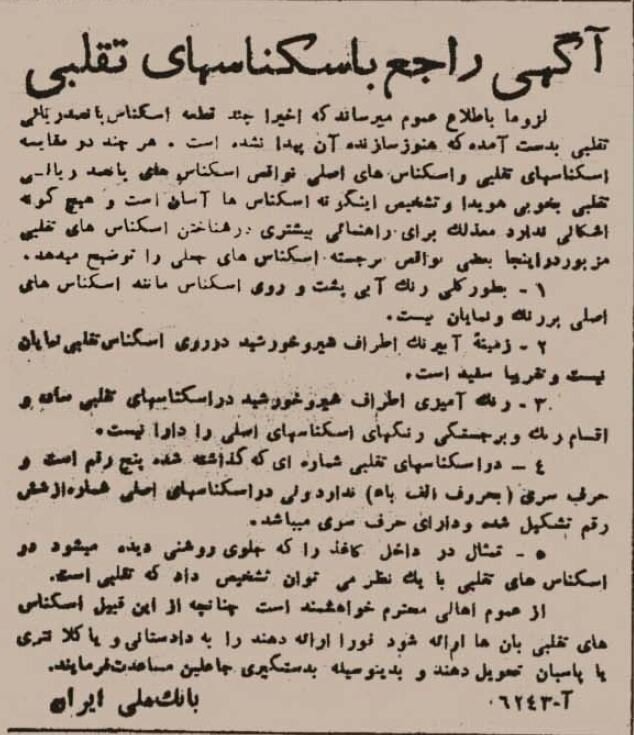 آگهی راجع باسکناسهای تقلبی
لزوما باطلاع عموم میرساند که اخیرا چند قطعه اسکناس پانصدریالی
تقلبی بدست آمده که هنوز سازنده آن پیدا نشده است . هر چند دو مقایسه
اسکناسهای تقلبی و اسکناس های اصلی نواقص اسکناس های پانصد ریالی
تقلبی بخوبی هویدا و تشخیص اینگونه اسکناس ها آسان است و هیچ گونه
اشکالی ندارد معذلك برای راهنمائی بیشتری درشناختن اسکناس های تقلبی
مزبور در اینجا بعضی نواقص برجسته اسکناس های جعلی را توضیح میدهد.
۱ - بطور کلی رنك آبی پشت و روی اسکناس مانند اسکناس های
اصلی پررنك و نمایان نیست.
۲ - زمینهٔ آبیرنك اطراف شیروخورشید درروی اسکناس تقلبی نمایان
نیست و تقریبا سفید است.
۳ - رنك آمیزی اطراف شیروخورشید در اسکناسهای تقلبی ساده و
اقسام رنك و برجستگی رنگهای اسکناسهای اصلی را دارا نیست.
٤ - در اسکناسهای تقلبی شماره ای که گذاشته شده پنج رقم است و
حرف سری (بحروف الف باء) ندارد ولی در اسکناسهای اصلی شماره از شش
رقم تشکیل شده و دارای حرف سری میباشد.
۵ - تمثال در داخل کاغذ را که جلوی روشنی دیده میشود در
اسکناس های تقلبی با یك نظر می توان تشخیص داد که تقلبی است.
از عموم اهالی محترم خواهشمند است چنانچه از این قبیل اسکناس
های تقلبی بان ها ارائه شود فورا ارائه دهند را به دادستانی و یا کلا نتری
یا پاسبان تحویل دهند و بدینوسیله بدستگیری جاعلین مساعدت فرمایند.
آ-٦٢٤٣٠ بانك ملی ایران